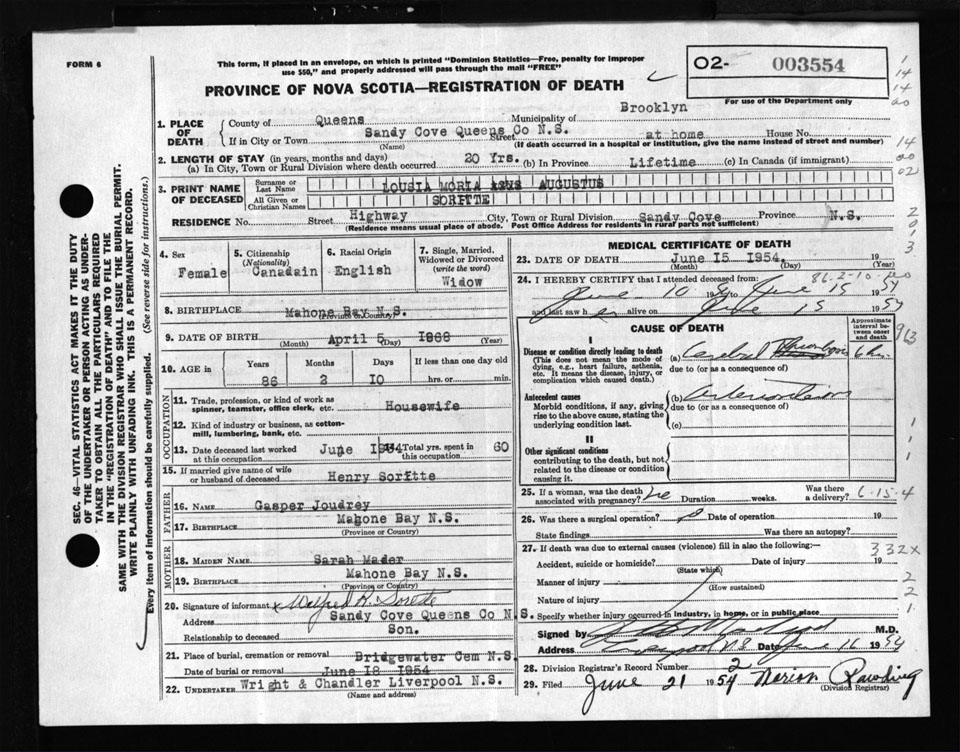 FORM 6
This form, if placed in an envelope, on which is printed "Dominion Statistics—Free, penalty for improper
use $50," and properly addressed will pass through the mail "FREE"
02- 003554
For use of the Department only
PROVINCE OF NOVA SCOTIA—REGISTRATION OF DEATH
1. PLACE OF DEATH
County of Queens Municipality of Brooklyn
If in City or Town Sandy Cove Queens Co N.S. Street at home House No.
(Name) (If death occurred in a hospital or institution, give the name instead of street and number)
2. LENGTH OF STAY (in years, months and days)
(a) In City, Town or Rural Division where death occurred 20 Yrs. (b) In Province Lifetime (c) In Canada (if immigrant)
3. PRINT NAME OF DECEASED
Surname or Last Name LOUSIA MORIA AUGUSTUS
All Given or Christian Names SORITTE
RESIDENCE No. Street Highway City, Town or Rural Division Sandy Cove Province N.S.
(Residence means usual place of abode. Post Office Address for residents in rural parts not sufficient)
4. Sex Female
5. Citizenship (Nationality) Canadain
6. Racial Origin English
7. Single, Married, Widowed or Divorced (write the word) Widow
8. BIRTHPLACE Mahone Bay N.S.
(Province or Country)
9. DATE OF BIRTH April 5 1868
(Month) (Day) (Year)
10. AGE in Years Months Days If less than one day old
86 2 10 hrs. or min.
OCCUPATION
11. Trade, profession, or kind of work as
spinner, teamster, office clerk, etc. Housewife
12. Kind of industry or business, as cotton-
mill, lumbering, bank, etc.
13. Date deceased last worked
at this occupation June 1954 Total yrs. spent in this occupation 60
15. If married give name of wife
or husband of deceased Henry Sorftte
FATHER
16. Name Gasper Joudrey
17. Birthplace Mahone Bay N.S.
(Province or Country)
MOTHER
18. Maiden Name Sarah Mader
19. Birthplace Mahone Bay N.S.
(Province or Country)
20. Signature of informant x Wilfred H. Sorette
Address Sandy Cove Queens Co N.S.
Relationship to deceased Son.
21. Place of burial, cremation or removal Bridgewater Cem N.S.
Date of burial or removal June 18 1954
22. Undertaker Wright & Chandler Liverpool N.S.
MEDICAL CERTIFICATE OF DEATH
23. DATE OF DEATH June 15 1954.
(Month) (Day) (Year)
86-2-10
24. I HEREBY CERTIFY that I attended deceased from:
June 10 1954 June 15 1954
and last saw h er alive on June 15 1954
CAUSE OF DEATH
Approximate interval between onset and death
I
Disease or condition directly leading to death
(This does not mean the mode of dying, e.g., heart failure, asthenia, etc. It means the disease, injury, or complication which caused death.)
(a) Cerebral
due to (or as a consequence of)
Antecedent causes
Morbid conditions, if any, giving rise to the above cause, stating the underlying condition last.
(b)
due to (or as a consequence of)
(c)
II
Other significant conditions
contributing to the death, but not related to the disease or condition causing it.
25. If a woman, was the death associated with pregnancy? Duration weeks. Was there a delivery? 6-15-4
26. Was there a surgical operation? Date of operation 19
State findings Was there an autopsy?
27. If death was due to external causes (violence) fill in also the following:—
332x
Accident, suicide or homicide? Date of injury 19
(State which)
Manner of injury
(How sustained)
Nature of injury
Specify whether injury occurred in industry, in home, or in public place
Signed by M.D.
Address Liverpool N.S. Date June 16 1954
28. Division Registrar's Record Number 2
29. Filed June 21 1954 Marion Rawding
(Division Registrar)
SEC. 46—VITAL STATISTICS ACT MAKES IT THE DUTY
OF THE UNDERTAKER OR PERSON ACTING AS UNDER-
TAKER TO OBTAIN ALL THE PARTICULARS REQUIRED
IN THE "REGISTRATION OF DEATH" AND TO FILE THE
SAME WITH THE DIVISION REGISTRAR WHO SHALL ISSUE THE BURIAL PERMIT.
WRITE PLAINLY WITH UNFADING INK. THIS IS A PERMANENT RECORD.
Every item of information should be carefully supplied. (See reverse side for instructions.)